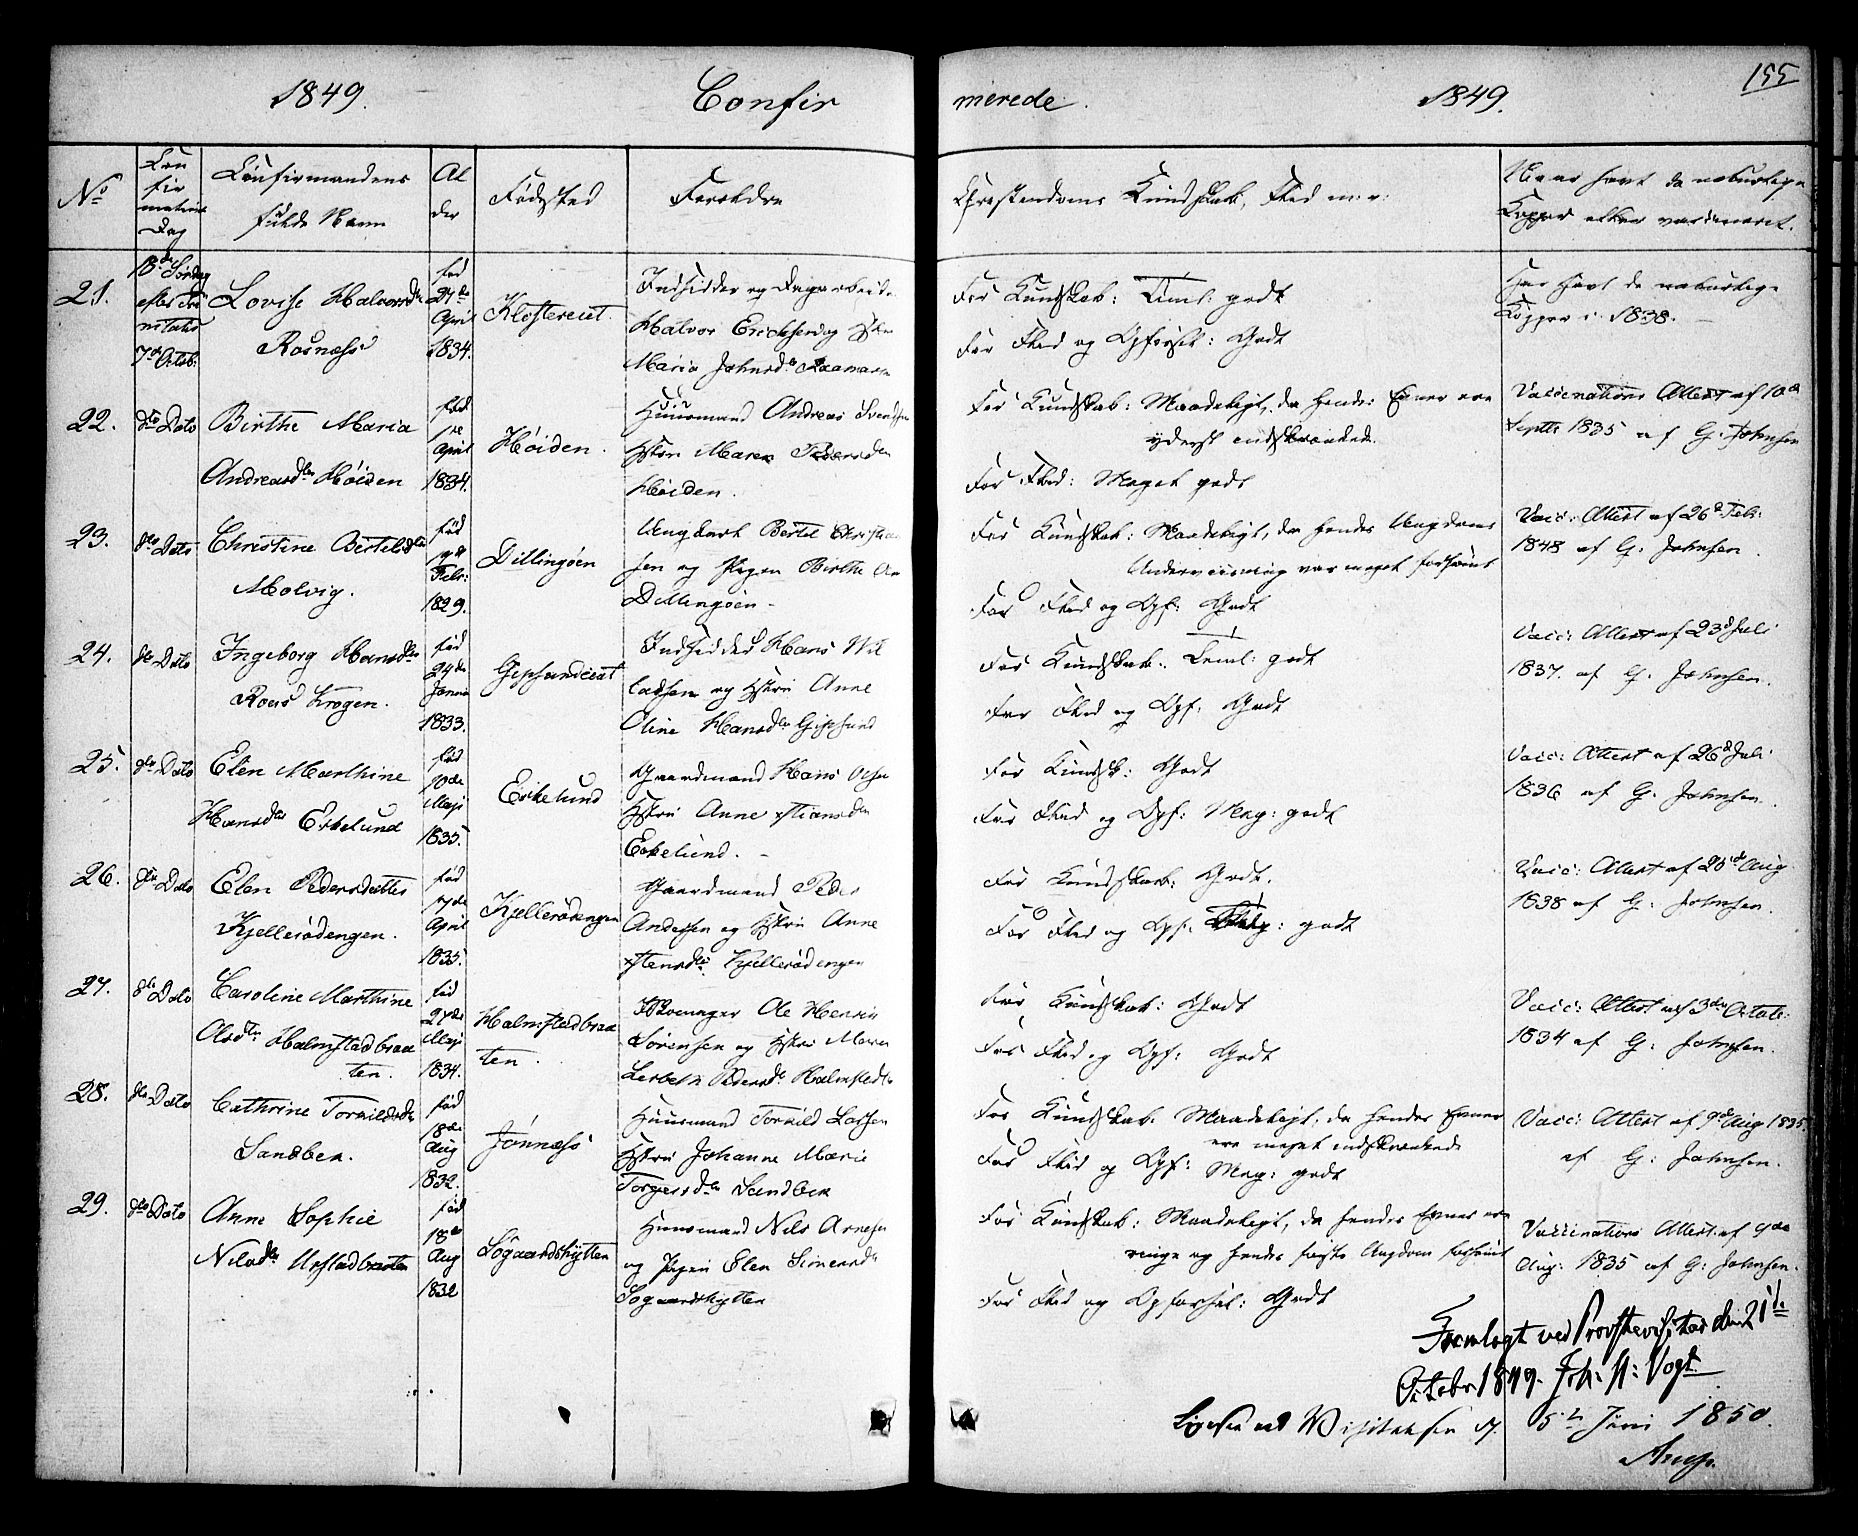 155
1849. Confir merede. 1849.
No
Con
fir
mations
Dag
Confirmandens
fulde Navn
Al
der
Fødested
Forældre
Christendoms Kundskab, Flid m: v:
Naar havt de naturlige
Kopper eller vaccineret.
21.
18de Søndag
efter Tri
nitatis
7de Octob:
Lovise Halvorsdtr
Rosnæss
fød
27de
April
1834.
Klostereiet.
Indsidder og Dagarbeider
Halvor Erichsen og Hstru
Maria Johnsdtr
For Kundskab: Teml: godt
For Flid og Opførsel: Godt
Har havt de naturlige
Kopper i 1838.
22.
dto Dato
Birthe Maria
Andreasdtr Höiden
fød
1de
April
1834.
Höiden.
Huusmand Andreas Svendsen
Hstru Maren Pedersdtr
Höiden.
For Kundskab: Maadeligt, da hendes Evner ere
yderst indskrænkede.
For Flid: Meget godt
Vaccinations Attest af 10de
Septbr 1835 af G. Johnsen
23.
dto Dato
Christine Bertelsdtr
Molvig.
fød
Febr:
1829.
Dillingöen
Ungkarl Bertel Christian
sen og Pigen Birthe An
Dillingöen
For Kundskab: Maadeligt, da hendes Ungdoms
Underviisning var meget forsömt
For Flid og Opf: Godt
Vacc: Attest af 26d Feb:
1848 af G. Johnsen.
24.
dto Dato
Ingeborg Hansdtr
Roeds Krogen.
fød
24de
Janua
1833.
Gipsundeiet
Indsidder Hans Wil
ladsen og Hstru Anne
Oline Hansdtr Gipsund
For Kundskab: Teml: godt
For Flid og Opf: Godt
Vacc: Attest af 23d Juli
1837. af G. Johnsen.
25.
dto Dato
Elen Marthine
Hansdtr Eskelund
fød
10de
Maji
1835.
Eskelund
Gaardmand Hans Olsen
Hstru Anne Xtiansdtr
Eskelund.
For Kundsk: Godt
For Flid og Opf: Meg: godt
Vacc: Attest af 26d Juli
1836 af G. Johnsen.
26.
dto Dato
Elen Pedersdatter
Kjellerödengen.
fød
17de
April
1835.
Kjellerödengen
Gaardmand Peder
Andersen og Hstru Anne
Xstensdtr Kjellerödengen
For Kundskab: Godt.
For Flid og Opf: Meg: godt
Vacc: Attest af 25de Aug
1838 af G. Johnsen.
27.
dto Dato
Caroline Marthine
Olsdtr Halmstadbraa
ten.
fød
27de
Maji
1834.
Halmstadbraa
ten.
Ole Henrik
Sörensen og Hstru Maren
Lisbeth Pedersdtr Halmstedbr
For Kundskab: Godt
For Flid og Opf: Godt
Vacc: Attest af 3de Octob:
1834 af G. Johnsen.
28.
dto Dato
Cathrine Torkildsdtr
Sandbek.
fød
18de
Aug
1832.
Jönnæss
Huusmand Torkild Larsen
Hstru Johanne Marie
Torgersdtr Sandbek
For Kundskab. Maadeligt, da hendes Evner
ere meget indskrænkede
For Flid og Opf: Meg: godt
Vacc: Attest af 9d Aug 1835.
af G: Johnsen.
29.
dto Dato
Anne Sophie
Nilsdtr Ulfstadbraaten
fød
18de
Aug
1832
Sögaardshytten
Huusmand Nils Arnesen
og Pigen Elen Simensdtr
Sogaardshytten
For Kundskab: Maadeligt, da hendes Evner ere
ringe og hendes første Ungdom forsömt
For Flid og Opførsel: Godt
Vaccinations Attest af 9de
Aug: 1835 af G: Johnsen.
Fremlagt ved Provstevisitas den 21de
October 1849. Joh. H: Vogt
Ligesaa ved Visitatsen d. 5te Juni 1850.
Arup.